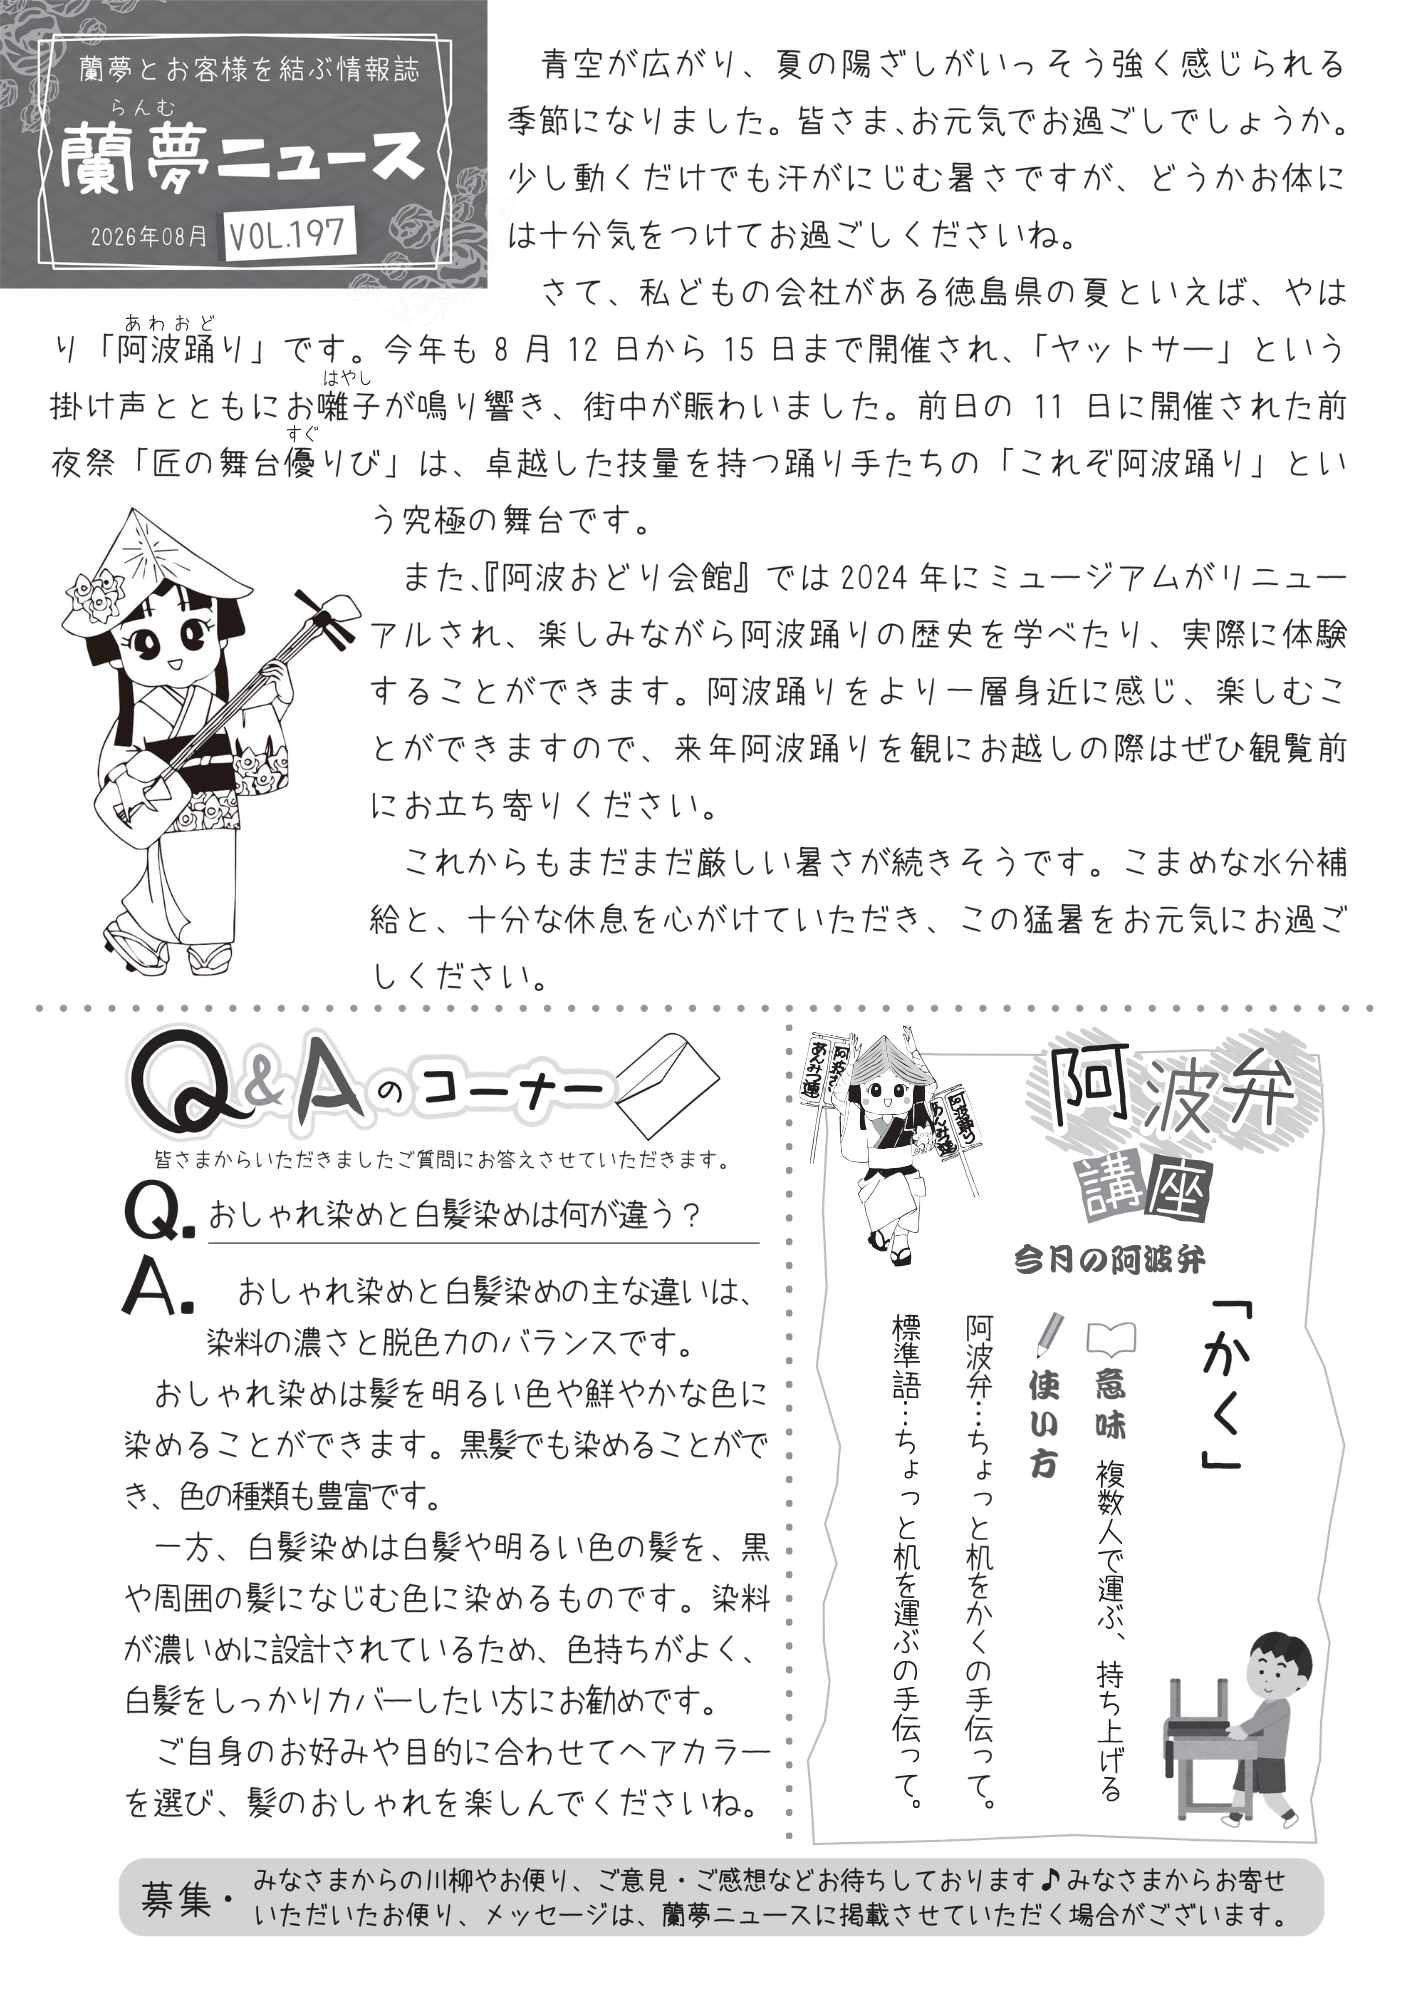 蘭夢とお客様を結ぶ情報誌
らんむ
蘭夢ニュース
2026年08月 VOL.197
青空が広がり、夏の陽ざしがいっそう強く感じられる
季節になりました。皆さま、お元気でお過ごしでしょうか。
少し動くだけでも汗がにじむ暑さですが、どうかお体に
は十分気をつけてお過ごしくださいね。
さて、私どもの会社がある徳島県の夏といえば、やは
あわおど
り「阿波踊り」です。今年も 8 月 12 日から 15 日まで開催され、「ヤットサー」という
はやし
掛け声とともにお囃子が鳴り響き、街中が賑わいました。前日の 11 日に開催された前
すぐ
夜祭「匠の舞台優りび」は、卓越した技量を持つ踊り手たちの「これぞ阿波踊り」とい
う究極の舞台です。
また、『阿波おどり会館』では 2024 年にミュージアムがリニュー
アルされ、楽しみながら阿波踊りの歴史を学べたり、実際に体験
することができます。阿波踊りをより一層身近に感じ、楽しむこ
とができますので、来年阿波踊りを観にお越しの際はぜひ観覧前
にお立ち寄りください。
これからもまだまだ厳しい暑さが続きそうです。こまめな水分補
給と、十分な休息を心がけていただき、この猛暑をお元気にお過ご
しください。
Q&Aのコーナー
皆さまからいただきましたご質問にお答えさせていただきます。
Q. おしゃれ染めと白髪染めは何が違う？
A. おしゃれ染めと白髪染めの主な違いは、
染料の濃さと脱色力のバランスです。
おしゃれ染めは髪を明るい色や鮮やかな色に
染めることができます。黒髪でも染めることがで
き、色の種類も豊富です。
一方、白髪染めは白髪や明るい色の髪を、黒
や周囲の髪になじむ色に染めるものです。染料
が濃いめに設計されているため、色持ちがよく、
白髪をしっかりカバーしたい方にお勧めです。
ご自身のお好みや目的に合わせてヘアカラー
を選び、髪のおしゃれを楽しんでくださいね。
あんみつ連
あんみつ連
阿波踊り
阿波弁
講座
今月の阿波弁
「かく」
意味 複数人で運ぶ、持ち上げる
使い方
阿波弁…ちょっと机をかくの手伝って。
標準語…ちょっと机を運ぶの手伝って。
募集・
みなさまからの川柳やお便り、ご意見・ご感想などお待ちしております♪みなさまからお寄せ
いただいたお便り、メッセージは、蘭夢ニュースに掲載させていただく場合がございます。